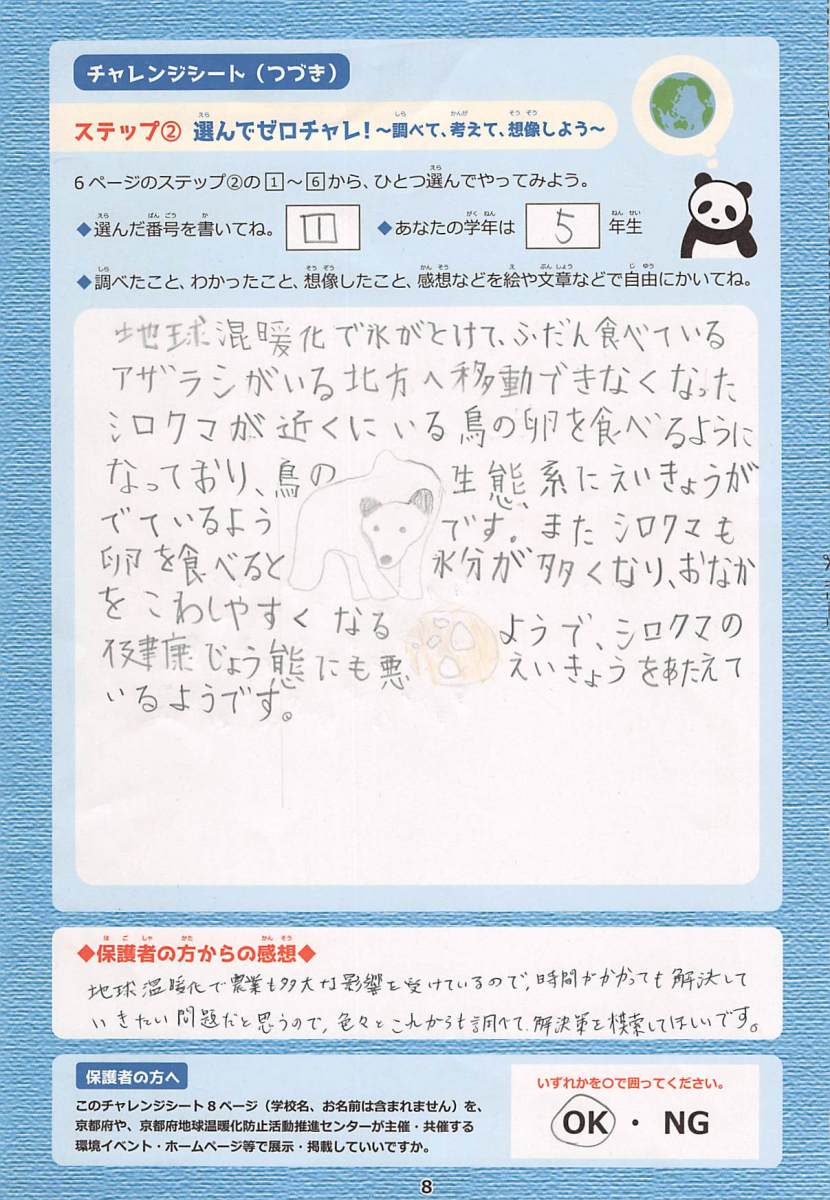 チャレンジシート（つづき）
ステップ② 選んでゼロチャレ！～調べて、考えて、想像しよう～
6ページのステップ②の1～6から、ひとつ選んでやってみよう。
◆選んだ番号を書いてね。 1 ◆あなたの学年は 5 年生
◆調べたこと、わかったこと、想像したこと、感想などを絵や文章などで自由にかいてね。
地球混暖化で氷がとけて、ふだん食べている
アザラシがいる北方へ移動できなくなった
シロクマが近くにいる鳥の卵を食べるように
なっており、鳥の生態系にえいきょうが
でているようです。またシロクマも
卵を食べると水分が多くなり、おなか
をこわしやすくなるようで、シロクマの
健康じょう態にも悪えいきょうをあたえて
いるようです。
◆保護者の方からの感想◆
地球温暖化で農業も多大な影響を受けているので、時間がかかっても解決して
いきたい問題だと思うので、色々とこれからも調べて、解決策を模索してほしいです。
保護者の方へ
このチャレンジシート8ページ（学校名、お名前は含まれません）を、
京都府や、京都府地球温暖化防止活動推進センターが主催・共催する
環境イベント・ホームページ等で展示・掲載していいですか。
いずれかを○で囲ってください。
OK ・ NG
8